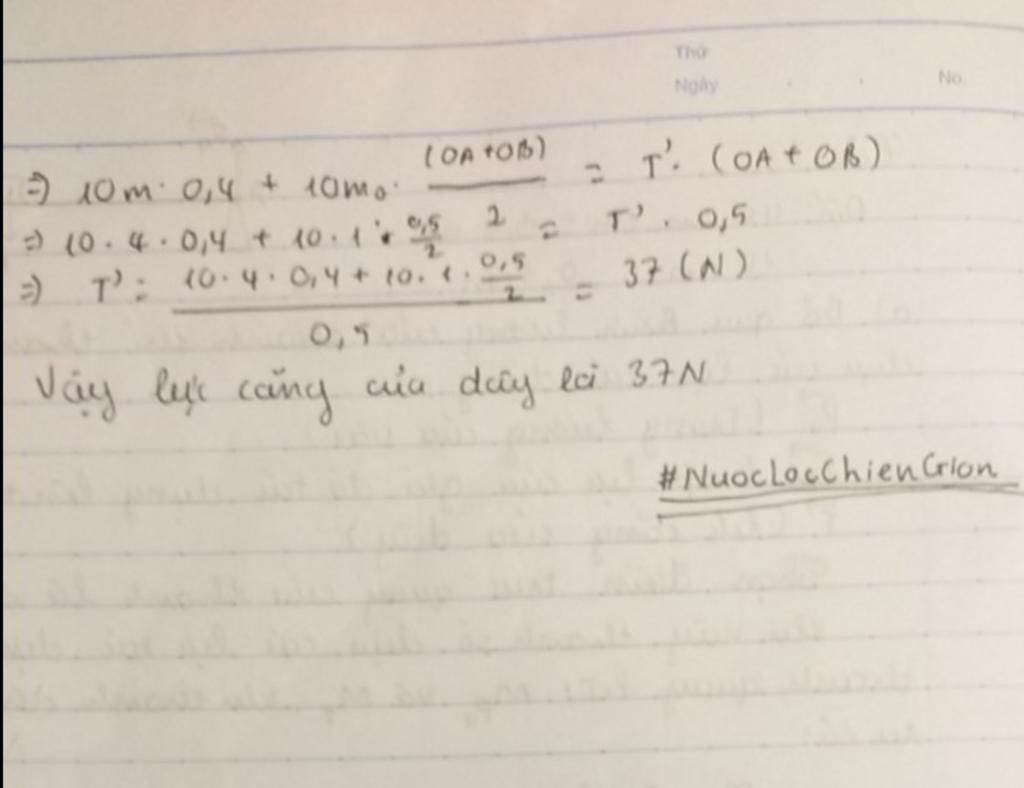 Thứ
Ngày . . No.
=) 10m. 0,4 + 10m₀. (OA+OB)/2 = T'. (OA + OB)
=) 10. 4. 0,4 + 10. 1. 0,5/2 = T'. 0,5
=) T' = (10. 4. 0,4 + 10. 1. 0,5/2)/0,5 = 37 (N)
Vậy lực căng của dây là 37N
#NuocLocChienGion